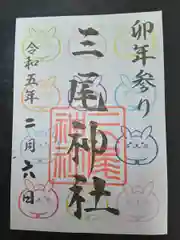 卯年参り
三尾神社
三尾神社
令和五年
二月六日